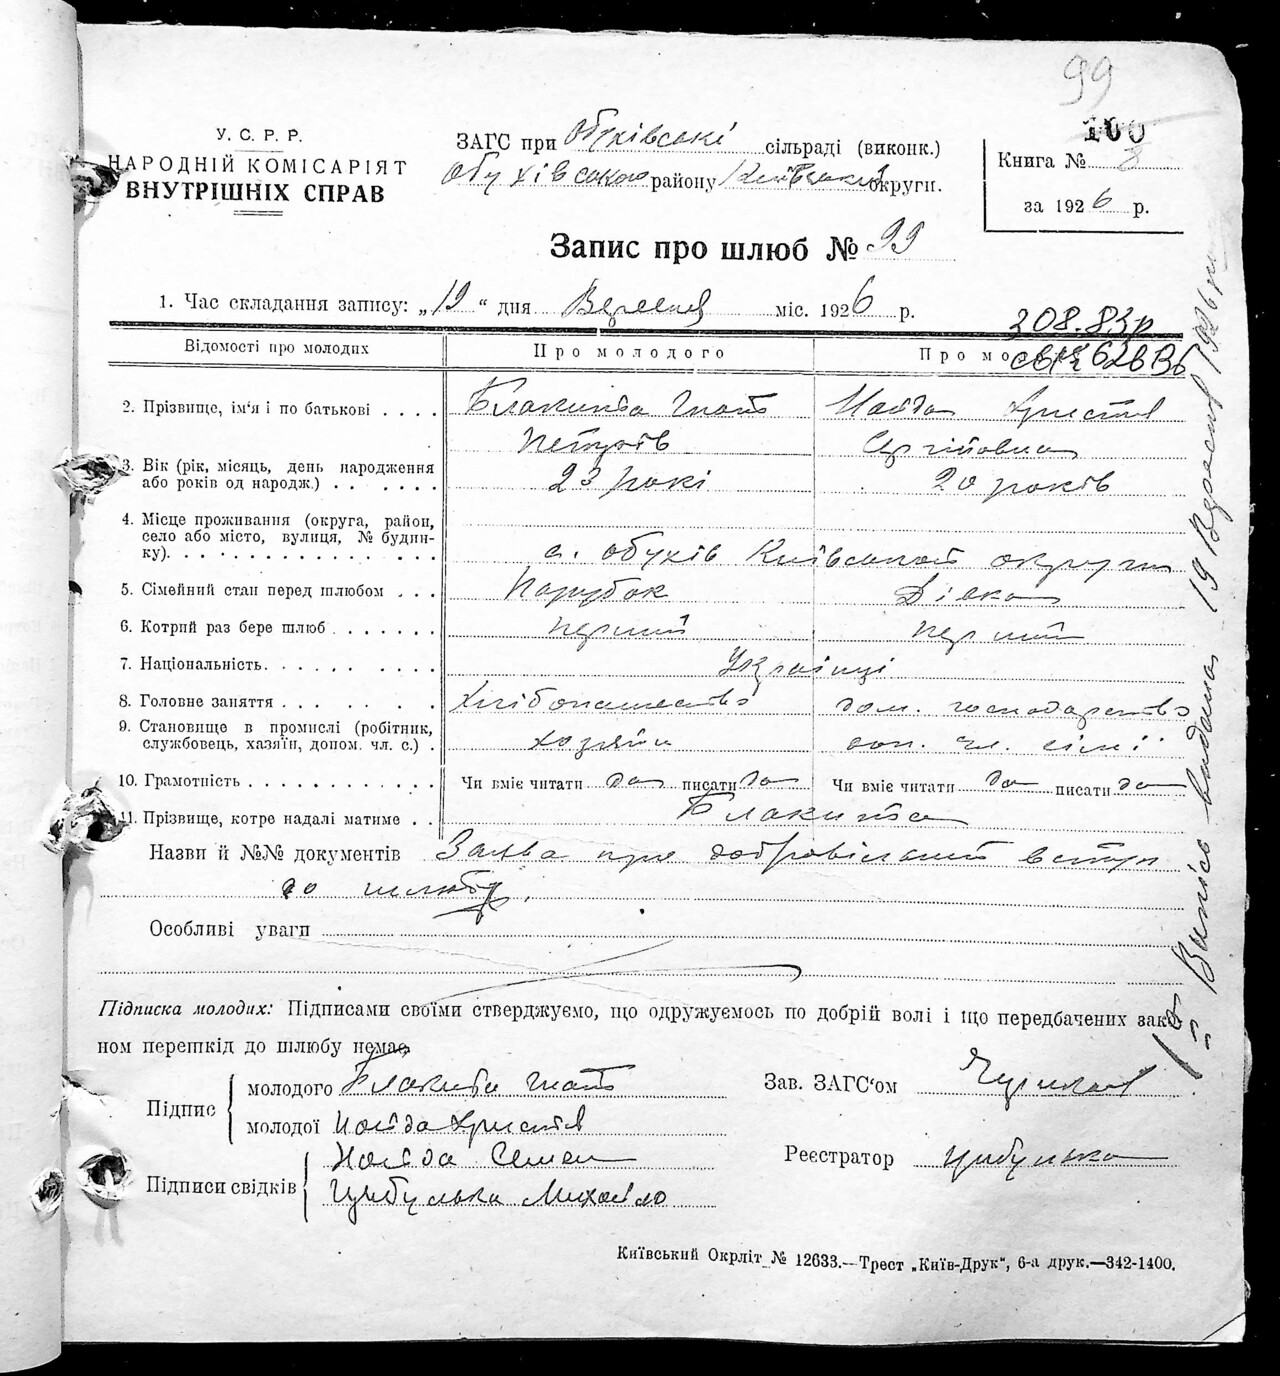 99
100
У. С. Р. Р.
НАРОДНІЙ КОМІСАРІЯТ
ВНУТРІШНІХ СПРАВ
ЗАГС при Обухівські сільраді (виконк.)
Обухівського району Київської округи.
Книга № 8
за 1926 р.
Запис про шлюб № 99
1. Час складання запису: „19“ дня Вересня міс. 1926 р.
308.83р
Відомості про молодих Про молодого Про мо
2. Прізвище, ім'я і по батькові . . . . Блакита Гнат Найда Христя
Петрів Сергійовна
3. Вік (рік, місяць, день народження 23 рокі 20 років
або років од народж.) . . . . . .
4. Місце проживання (округа, район,
село або місто, вулиця, № будин-
ку). с. Обухів Київської округи
5. Сімейний стан перед шлюбом . . . Парубок Дівка
6. Котрий раз бере шлюб . . . . . . . перший перший
7. Національність. . . . . . . . . . Українці
8. Головне заняття . . . . . . . . Хлібопашество дом. господарство
9. Становище в промислі (робітник,
службовець, хазяїн, допом. чл. с.) . хозяїн доп. чл. сімї
10. Грамотність . . . . . . . . . . . . Чи вміє читати да писати да Чи вміє читати да писати да
11. Прізвище, котре надалі матиме . . Блакита
Назви й №№ документів Заява про добровільний вступ
до шлюбу.
Особливі уваги
Підписка молодих: Підписами своїми стверджуємо, що одружуємось по добрій волі і що передбачених зако-
ном перешкід до шлюбу немає.
Підпис
молодого Блакита Гнат
молодої Найда Христя
Підписи свідків
Найда Семен
Цибулька Михайло
Зав. ЗАГС'ом
Реєстратор Цибулька
Київський Окрліт № 12633.—Трест „Київ-Друк“, 6-а друк.—342-1400.
Випісь видана 19 Вересня 1926 року